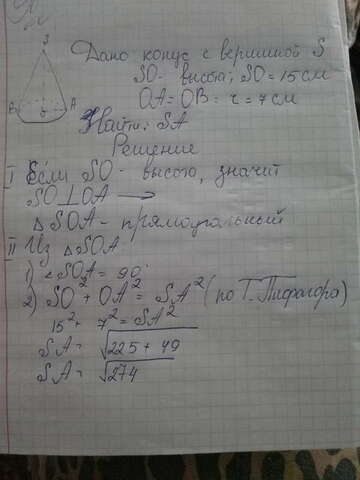 S
Дано конус с вершиной S
SO - высота; SO = 15 см
OA = OB = r = 7 см
B
A
Найти: SA
Решение
I Если SO - высота, значит
SO ⊥ OA →
△ SOA - прямоугольный
II Из △ SOA
1) ∠SOA = 90°
2) SO² + OA² = SA² (по Т. Пифагора)
15² + 7² = SA²
SA = √225 + 49
SA = √274